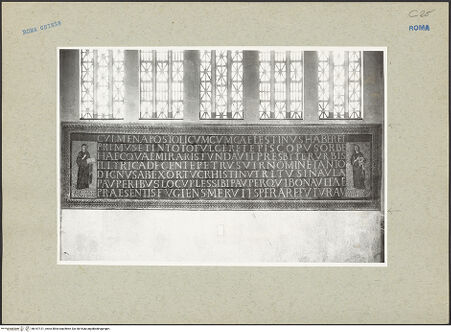 ROMA CHIESE
C 25
ROMA
CVLMEN APOSTOLICVM CVM CAELESTINVS HABERET
PRIMVS ET IN TOTO FVLGERET EPISCOPVS ORBE
HAEC QVAE MIRARIS FVNDAVIT PRESBYTER VRBIS
ILLYRICA DE GENTE PETRVS VIR NOMINE TANTO
DIGNVS AB EXORTV CHRISTI NVTRITVS IN AVLA
PAVPERIBVS LOCVPLES SIBI PAVPER QVI BONA VITAE
PRAESENTIS FVGIENS MERVIT SPERARE FVTVRAM